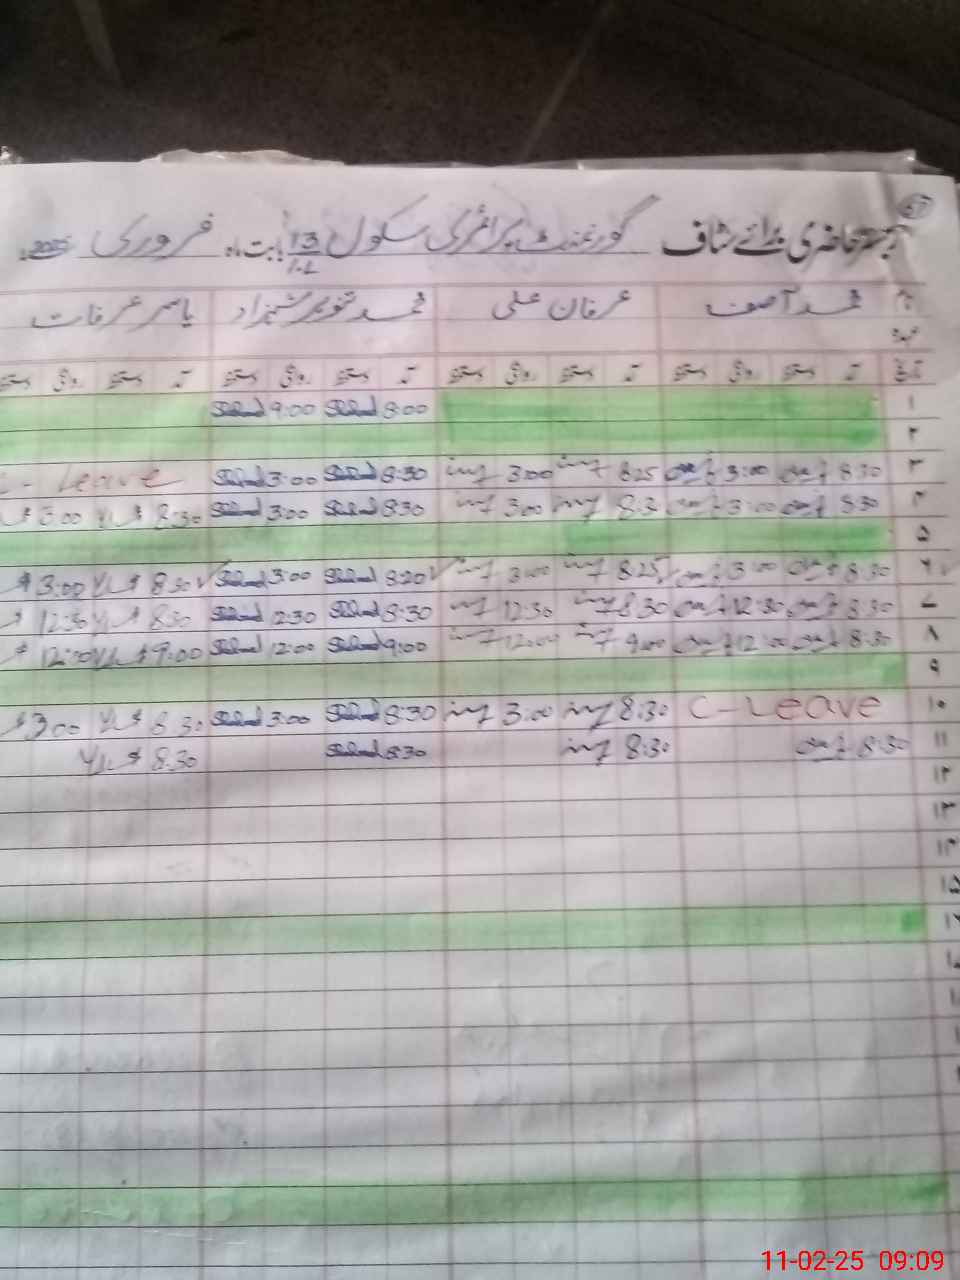 رجسٹر حاضری برائے سٹاف گورنمنٹ پرائمری سکول 13/1.L بابت ماہ فروری 2025ء
67
نام محمد آصف عرفان علی محمد تنویر شہزاد یاسر عرفات
عہدہ
تاریخ آمد دستخط روانگی دستخط آمد دستخط روانگی دستخط آمد دستخط روانگی دستخط آمد دستخط روانگی دستخط
۱ 8:00 9:00
۲
۳ 8:30 3:00 8:25 3:00 8:30 3:00 C- Leave
۴ 8:30 3:00 8:30 3:00 8:30 3:00 8:30 3:00
۵
۶ 8:30 3:00 8:25 3:00 8:20 3:00 8:30 3:00
۷ 8:30 12:30 8:30 12:30 8:30 12:30 8:30 12:30
۸ 8:30 12:00 9:00 12:00 9:00 12:00 9:00 12:00
۹
۱۰ C-Leave 8:30 3:00 8:30 3:00 8:30 3:00
۱۱ 8:30 8:30 8:30 8:30
۱۲
۱۳
۱۴
۱۵
۱۶
11-02-25 09:09